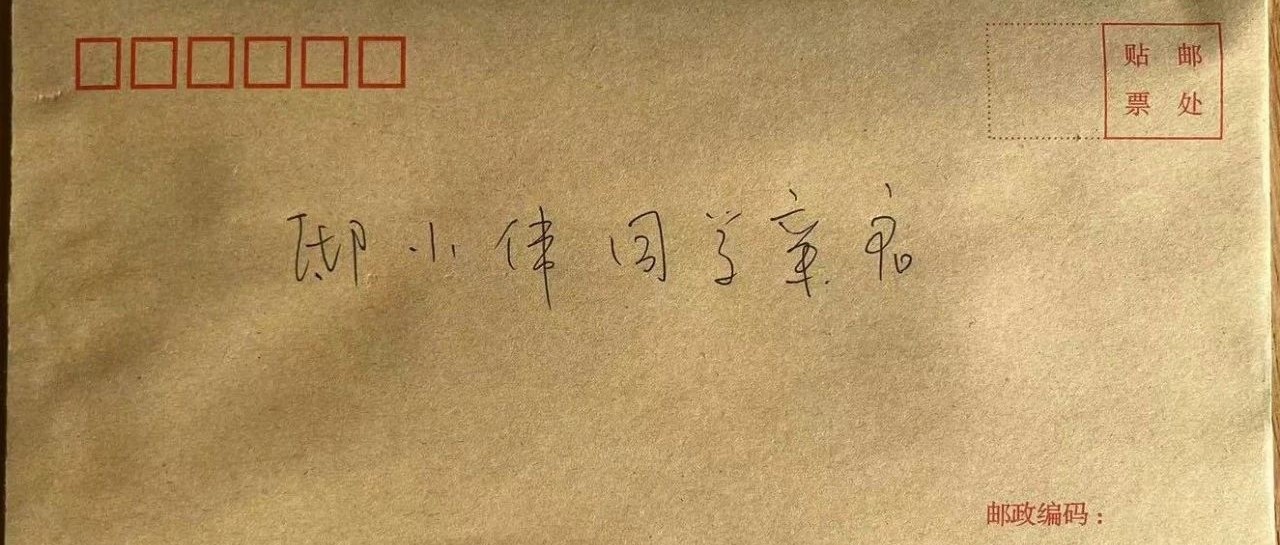 贴邮
票处
邸小伟同学
邮政编码：